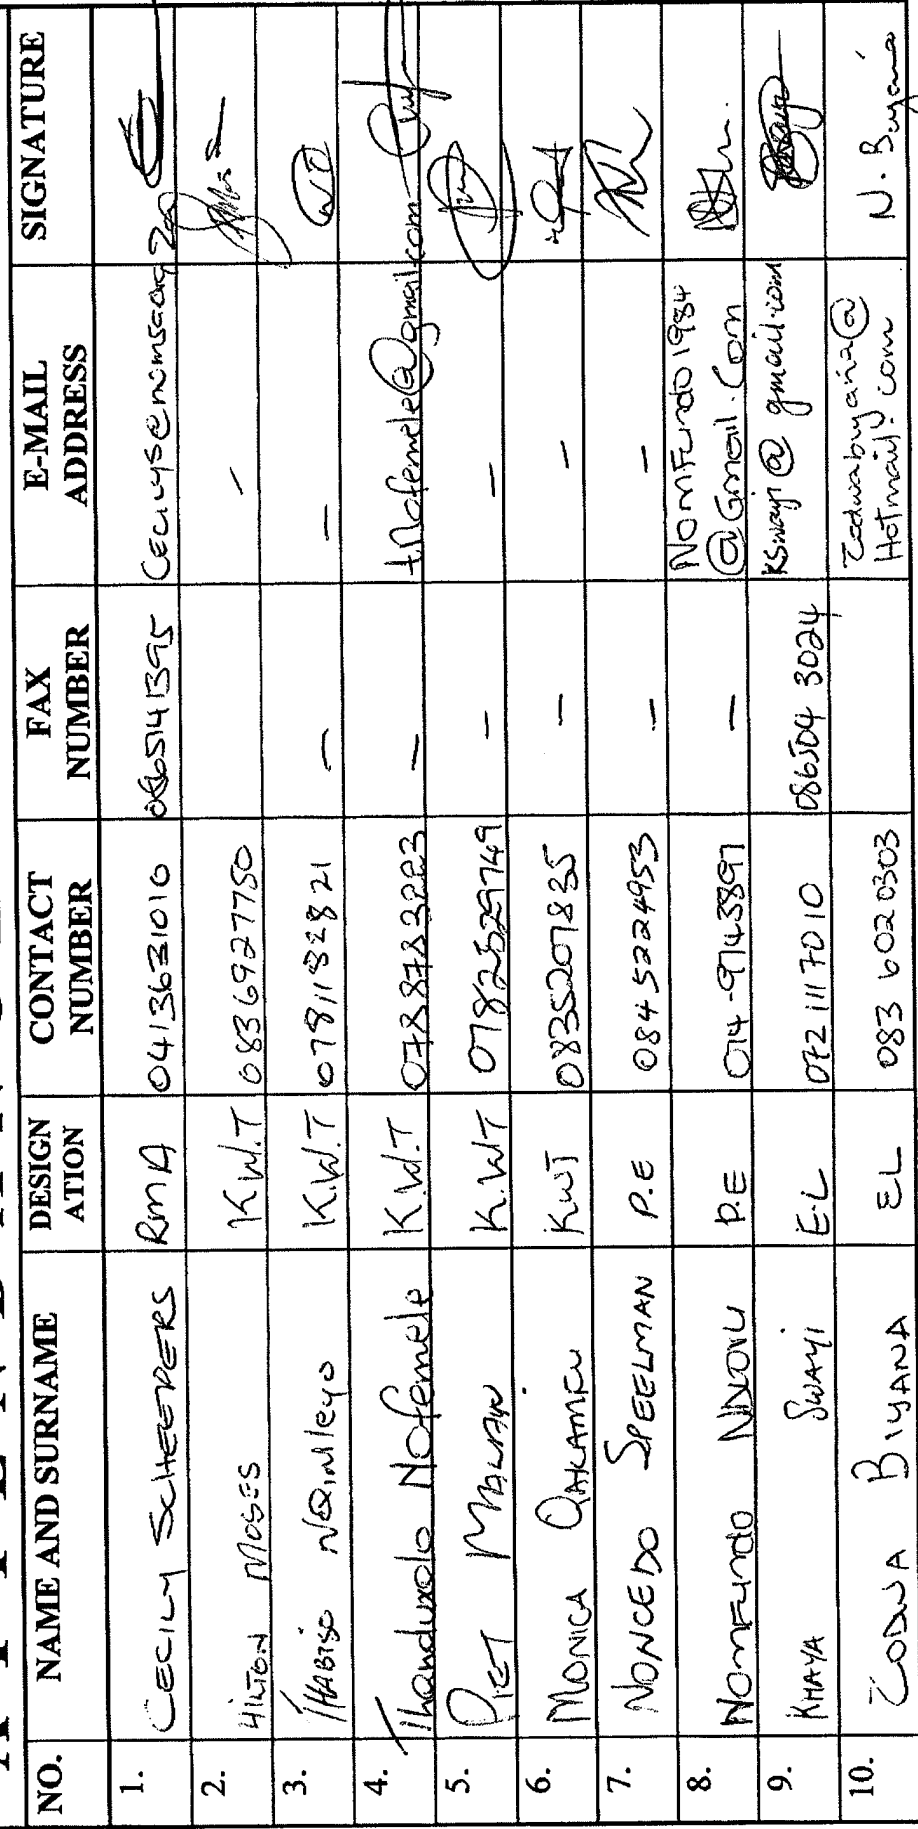 NO. NAME AND SURNAME DESIGN ATION CONTACT NUMBER FAX NUMBER E-MAIL ADDRESS SIGNATURE
1. CECILY SCHEEPERS RMA 0413631010 0865141395
2. HILTON MOSES K.W.T 0836927750 -
3. THABISO K.W.T 0781182821 - -
4. Thanduxolo Nofemele K.W.T 0788783223 - tnofemele@gmail.com
5. PIET K.WT 0782529749 - -
6. MONICA KWT 0835207835 - -
7. NONCEDO SPEELMAN P.E 084 5224953 - -
8. NOMFUNDO NDLOVU P.E 074-9743897 - NomFundo1984
@Gmail.Com
9. KHAYA SWAYI E.L 072 111 7010 086504 3024 KSwayi@gmail.com
10. ZODWA BIYANA EL 083 602 0303 Hotmail.com